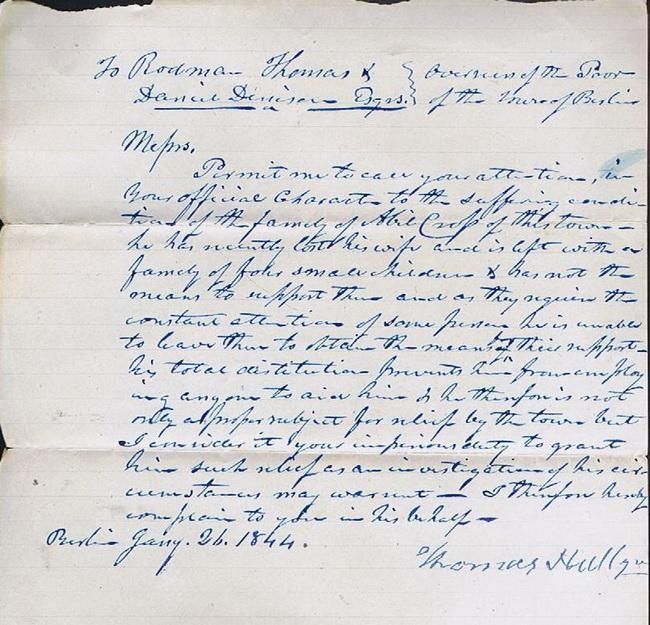 To Rodman Thomas & } Overseers of the Poor
Daniel Denison Esqrs. } of the Town of Berlin
Messrs.
Permit me to call your attention, in
your official Character to the suffering condi-
tion of the family of Abel Cross of this town –
he has recently lost his wife and is left with a
family of four small children & has not the
means to support them and as they require the
constant attention of some person he is unable
to leave them to obtain the means of their support –
his total destitution prevents him from employ
ing any one to aid him & he therefore is not
only a proper subject for relief by the town but
I consider it your imperious duty to grant
him such relief as an investigation of his cir-
cumstances may warrant – I therefore hereby
complain to you in his behalf –
Berlin Jany. 26. 1844.
Thomas Hull